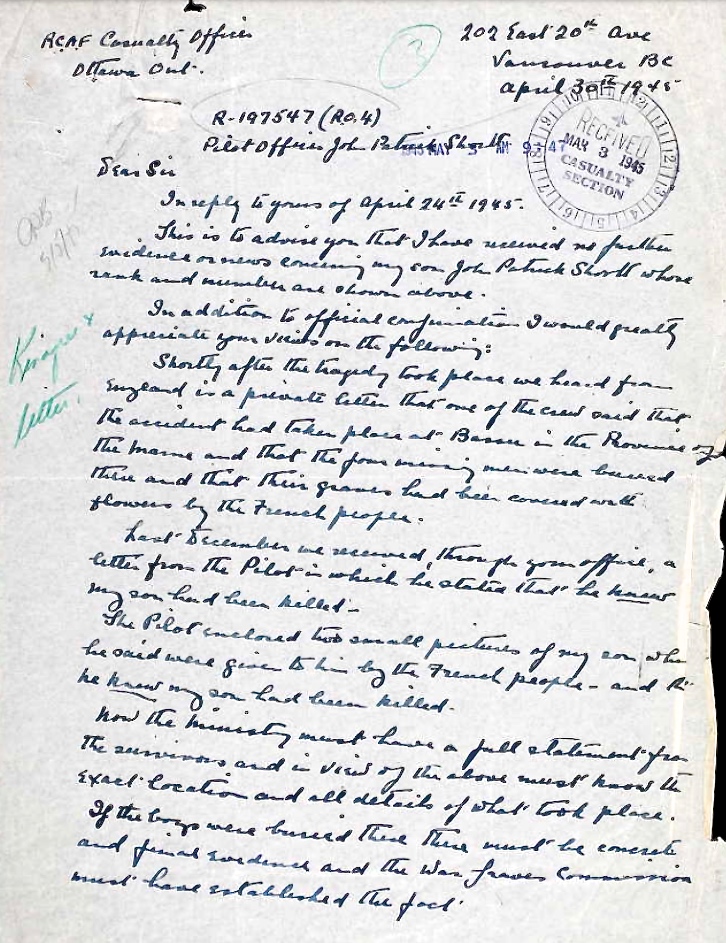 RCAF Casualty Officer
Ottawa Ont.
3
202 East 20th Ave
Vancouver BC
April 30th 1945
R-197547 (RO.4)
Pilot Officer John Patrick Shortt
1945 MAY 3 AM 9:47
RECEIVED
MAR 3 1945
CASUALTY
SECTION
Dear Sir
In reply to yours of April 24th 1945.
This is to advise you that I have received no further
evidence or news concering my son John Patrick Shortt whose
rank and number are shown above.
In addition to official confirmation I would greatly
appreciate your views on the following:
Shortly after the tragedy took place we heard from
England is a private letter that one of the crew said that
the accident had taken place at in the Province of
the Marne and that the four missing men were buried
there and that their graves had been covered with
flowers by the French people.
Last December we received, through your office, a
letter from the Pilot in which he stated that he knew
my son had been killed-
The Pilot enclosed two small pictures of my son whi
he said were given to him by the French people - and th
he knew my son had been killed.
Now the Ministry must have a full statement from
the survivors and in view of the above must know th
exact location and all details of what took place.
If the boys were buried there there must be concrete
and final evidence and the War Graves Commission
must have established the fact.
letter.